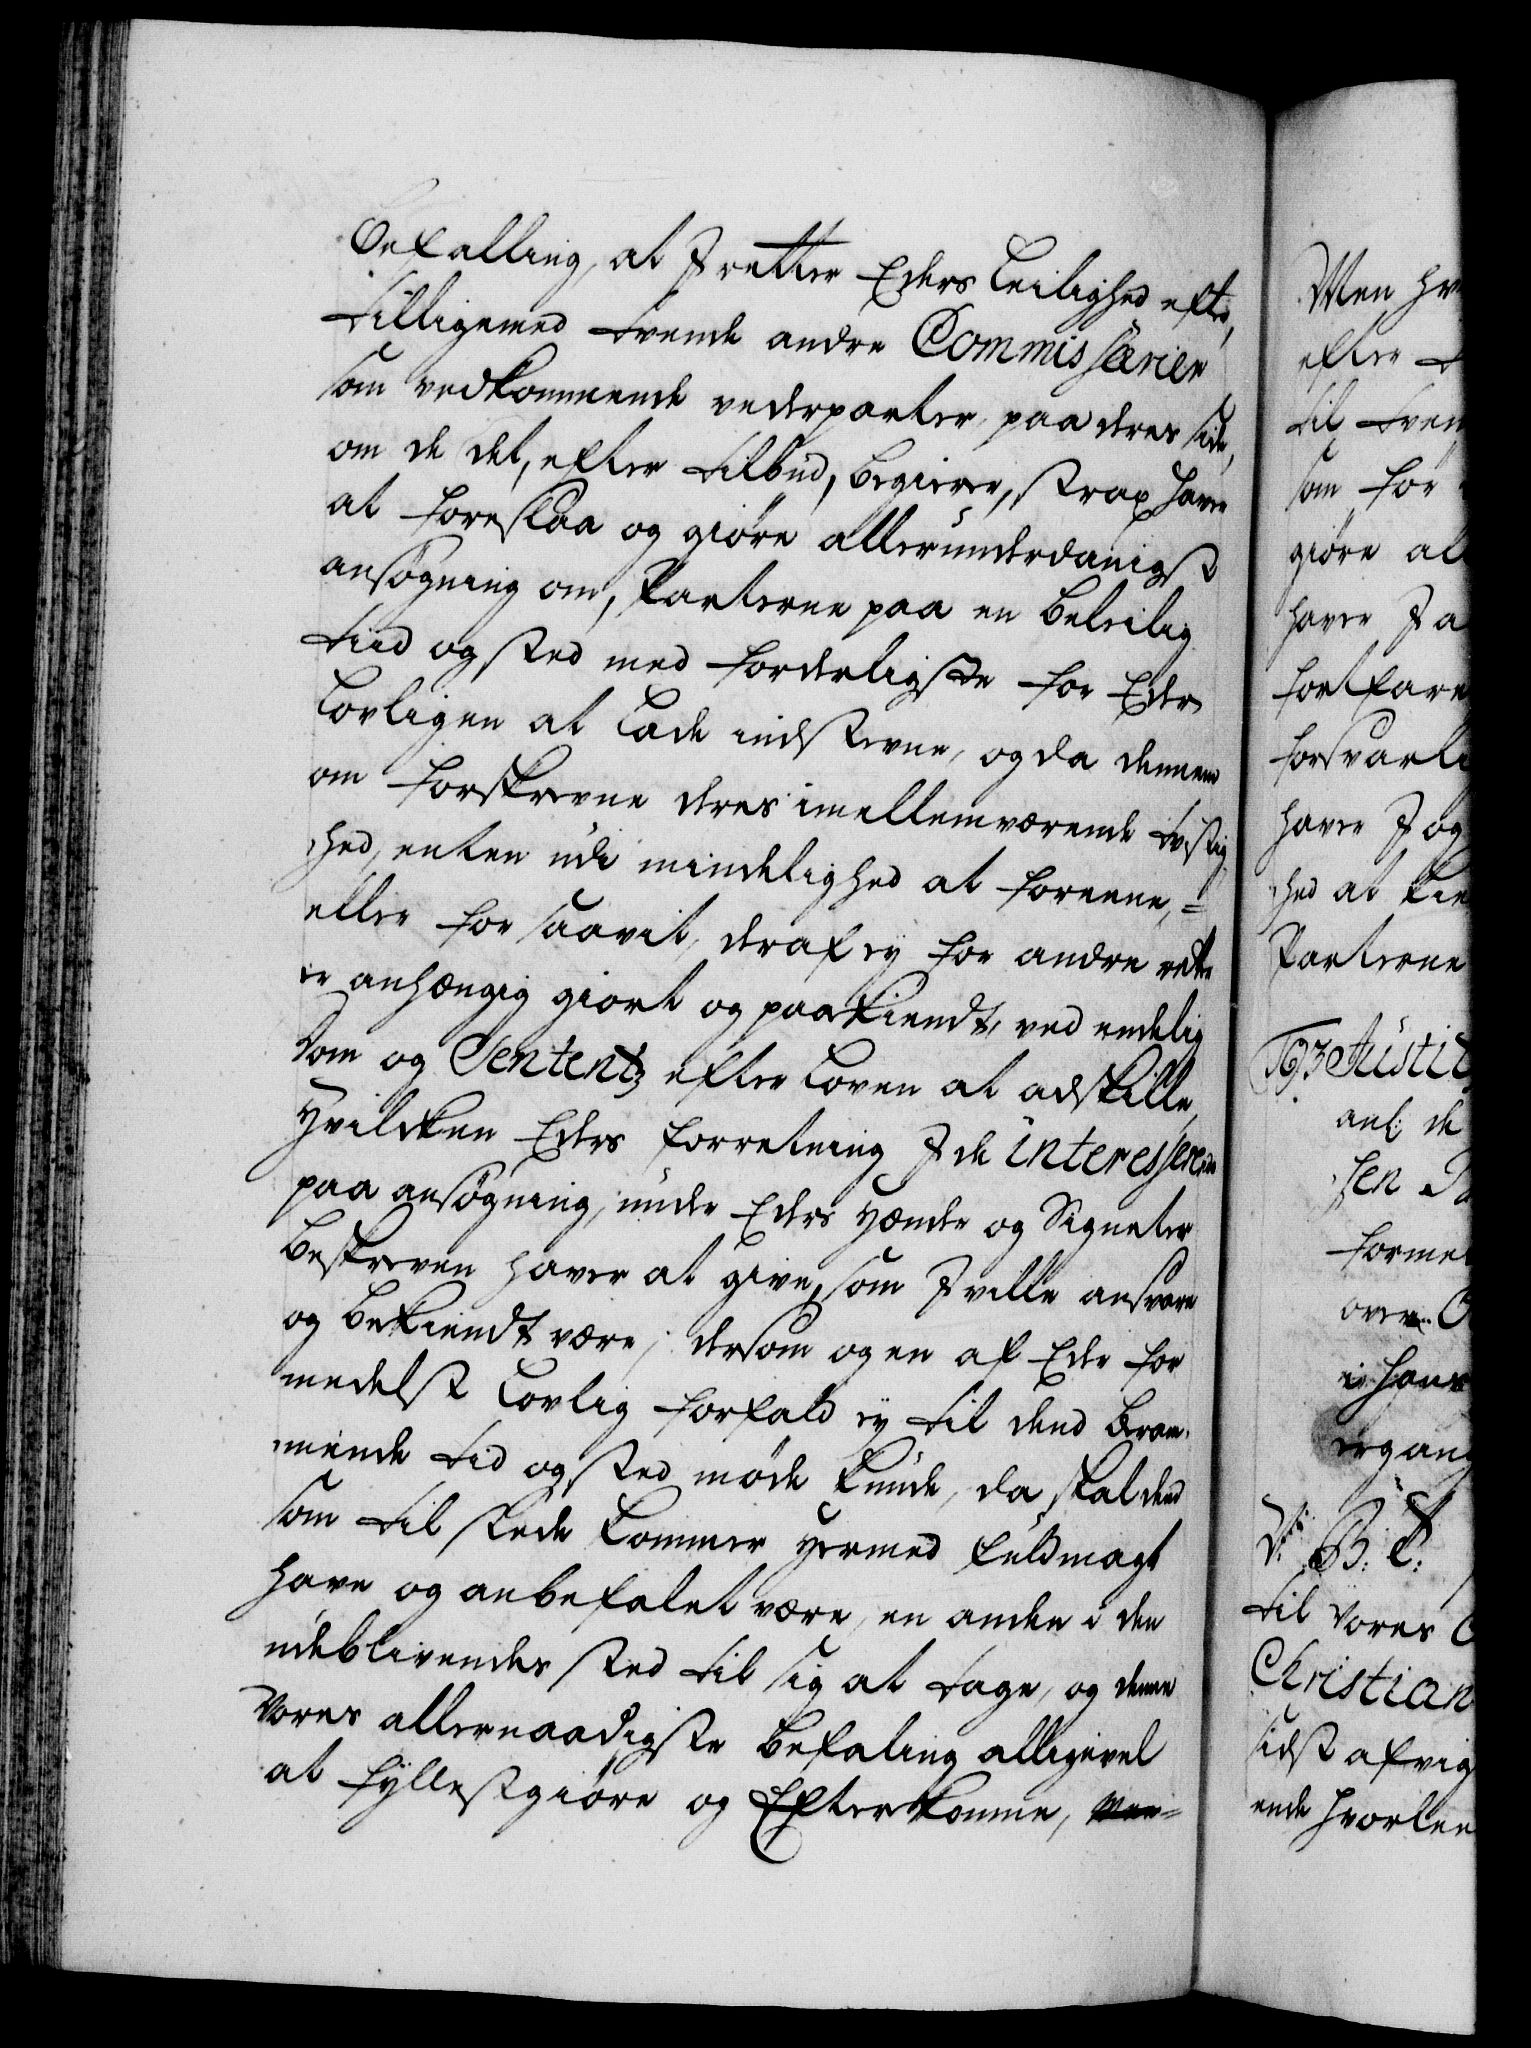 Befalling, at I retter Eders Leilighed efter,
tilligemed tvende andre Commissarier
som vedkommende vederparter, paa deres side,
om de det, efter tilbud, begierer, strax haver
at foreslaa og giøre allerunderdanigst
ansøgning om, Parterne paa en beleilig
tiid og sted med forderligste for Eder
Lovligen at Lade indstevne, og da dennem
om forskrevne deres imellemværende tvistig,
hed, enten udi mindelighed at foreene, =
eller for saavit, deraf ey for andre rette
er anhængig giort og paakiendt, ved endelig
Dom og Sententz efter Loven at adskille,
Hvilcken Eders forretning I de interesserede
paa ansøgning, under Eders Hænder og Signeter
beskreven haver at give, som I ville ansvare
og bekiendt være; dersom og en af Eder for
medelst Lovlig forfald ey til dend beram,
mende tid og sted møde kunde, da skal dend
som til stede kommer hermed fuldmagt
have og anbefalet være, en anden i den
udeblivendes sted til sig at tage, og denne
Vores allernaadigste befaling alligevel
at fyllestgiøre og Efterkomme, Men=
Men hv
efter
til tven
som for
giøre al
haver I a
fortfare
forsvarli
haver I og
hed at kie
Parterne
Justit
anl: de
sen
forme
over
i hans
ergang
V: B: T:
til Vores
Christian
sidst afvig
ende hvorlee